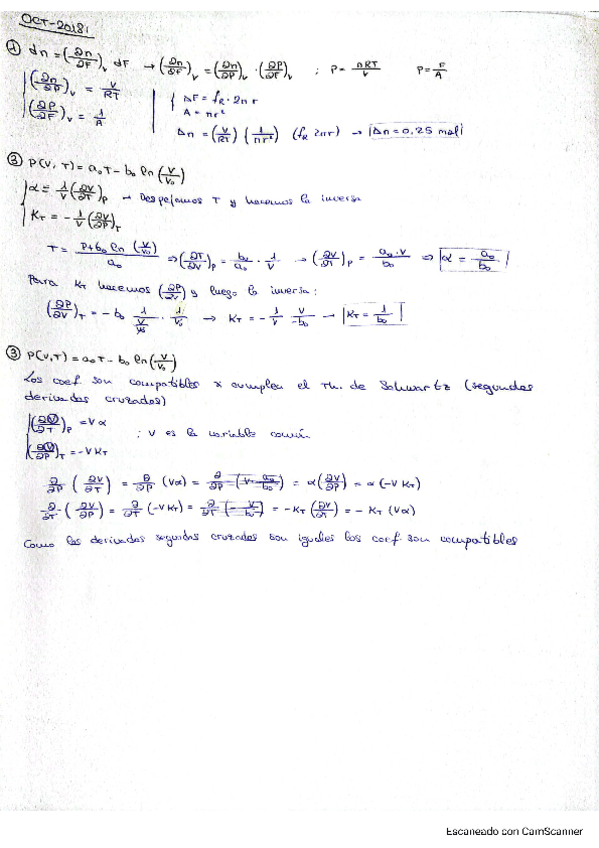 OCT-2018:
① dn = (∂n/∂F)_V dF → (∂n/∂F)_V = (∂n/∂P)_V · (∂P/∂F)_V ; P = nRT/V P = F/A
(∂n/∂P)_V = V/RT
(∂P/∂F)_V = 1/A
ΔF = f_R · 2πr
A = πr²
Δn = (V/RT) (1/πr²) (f_R 2πr) → Δn = 0,25 mol
② P(V, T) = a₀T - b₀ ln(V/V₀)
α = 1/V (∂V/∂T)_P → Despejamos T y hacemos la inversa
K_T = - 1/V (∂V/∂P)_T
T = P + b₀ ln(V/V₀) / a₀ ⇒ (∂T/∂V)_P = b₀/a₀ · 1/V → (∂V/∂T)_P = a₀ · V / b₀ ⇒ α = a₀/b₀
Para K_T hacemos (∂P/∂V) y luego la inversa:
(∂P/∂V)_T = - b₀ 1/(V/V₀) · 1/V₀ → K_T = - 1/V V/-b₀ → K_T = 1/b₀
③ P(V,T) = a₀T - b₀ ln(V/V₀)
Los coef. son compatibles x cumplen el Th. de Schwartz (segundas
derivadas cruzadas)
(∂V/∂T)_P = Vα
; V es la variable común
(∂V/∂P)_T = -V K_T
∂/∂P (∂V/∂T) = ∂/∂P (Vα) = ∂/∂P (V · a₀/b₀) = α (∂V/∂P) = α (-V K_T)
∂/∂T (∂V/∂P) = ∂/∂T (-V K_T) = ∂/∂T (- V/b₀) = - K_T (∂V/∂T) = - K_T (Vα)
Como las derivadas segundas cruzadas son iguales los coef. son compatibles
Escaneado con CamScanner